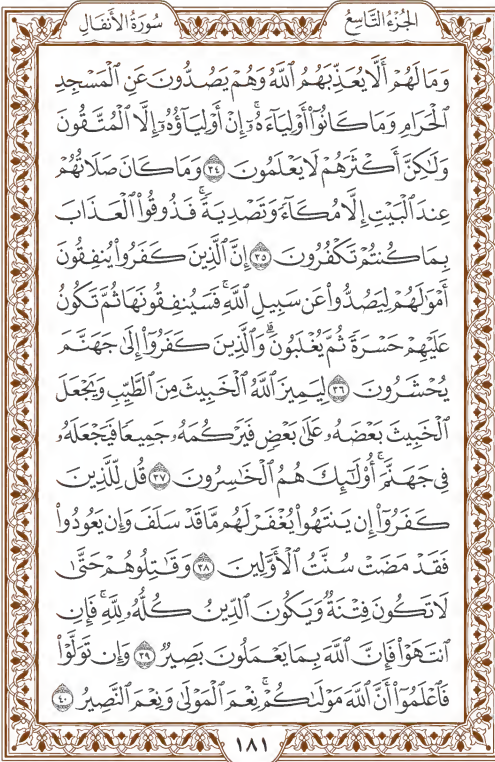 الجُزْءُ التَّاسِعُ
سُورَةُ الأَنفَالِ
وَمَا لَهُمْ أَلَّا يُعَذِّبَهُمُ ٱللَّهُ وَهُمْ يَصُدُّونَ عَنِ ٱلْمَسْجِدِ
ٱلْحَرَامِ وَمَا كَانُوٓا۟ أَوْلِيَآءَهُۥٓ ۚ إِنْ أَوْلِيَآؤُهُۥٓ إِلَّا ٱلْمُتَّقُونَ
وَلَٰكِنَّ أَكْثَرَهُمْ لَا يَعْلَمُونَ ٣٤ وَمَا كَانَ صَلَاتُهُمْ
عِندَ ٱلْبَيْتِ إِلَّا مُكَآءً وَتَصْدِيَةً ۚ فَذُوقُوا۟ ٱلْعَذَابَ
بِمَا كُنتُمْ تَكْفُرُونَ ٣٥ إِنَّ ٱلَّذِينَ كَفَرُوا۟ يُنفِقُونَ
أَمْوَٰلَهُمْ لِيَصُدُّوا۟ عَن سَبِيلِ ٱللَّهِ ۚ فَسَيُنفِقُونَهَا ثُمَّ تَكُونُ
عَلَيْهِمْ حَسْرَةً ثُمَّ يُغْلَبُونَ ۗ وَٱلَّذِينَ كَفَرُوٓا۟ إِلَىٰ جَهَنَّمَ
يُحْشَرُونَ ٣٦ لِيَمِيزَ ٱللَّهُ ٱلْخَبِيثَ مِنَ ٱلطَّيِّبِ وَيَجْعَلَ
ٱلْخَبِيثَ بَعْضَهُۥ عَلَىٰ بَعْضٍ فَيَرْكُمَهُۥ جَمِيعًا فَيَجْعَلَهُۥ
فِى جَهَنَّمَ ۚ أُو۟لَٰٓئِكَ هُمُ ٱلْخَٰسِرُونَ ٣٧ قُل لِّلَّذِينَ
كَفَرُوٓا۟ إِن يَنتَهُوا۟ يُغْفَرْ لَهُم مَّا قَدْ سَلَفَ وَإِن يَعُودُوا۟
فَقَدْ مَضَتْ سُنَّتُ ٱلْأَوَّلِينَ ٣٨ وَقَٰتِلُوهُمْ حَتَّىٰ
لَا تَكُونَ فِتْنَةٌ وَيَكُونَ ٱلدِّينُ كُلُّهُۥ لِلَّهِ ۚ فَإِنِ
ٱنتَهَوْا۟ فَإِنَّ ٱللَّهَ بِمَا يَعْمَلُونَ بَصِيرٌ ٣٩ وَإِن تَوَلَّوْا۟
فَٱعْلَمُوٓا۟ أَنَّ ٱللَّهَ مَوْلَىٰكُمْ ۚ نِعْمَ ٱلْمَوْلَىٰ وَنِعْمَ ٱلنَّصِيرُ ٤٠
١٨١